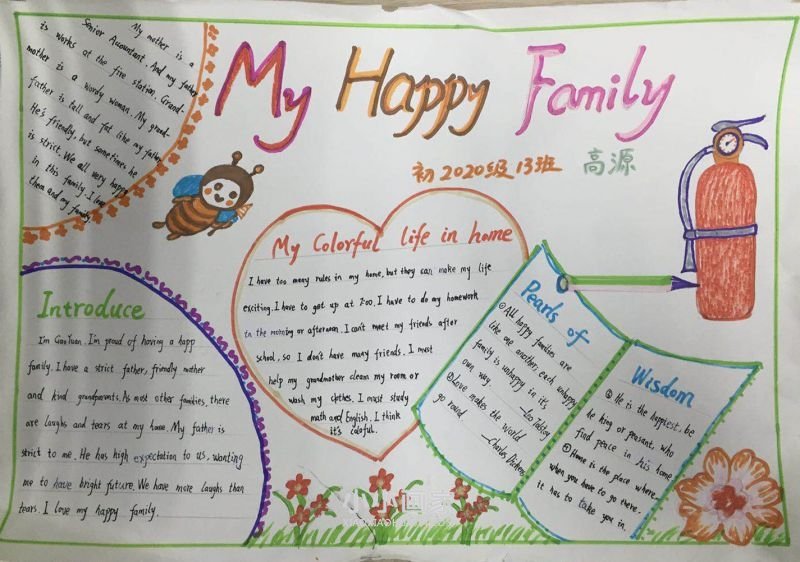 My Happy Family
初2020级13班 高源
My mother is a
Senior Acountant. And my father
is works at the fire station. Grand-
mother is a wordy woman. My grand-
father is tall and fat like my father.
He's friendly, but sometimes he
is strict. We all very happy
in this family. I love
them and my family.
Introduce
I'm GaoYuan. I'm proud of having a happ
family. I have a strict father, friendly mother
and kind grandparents. As most other families, there
are laughs and tears at my home. My father is
strict to me. He has high expectation to us, wanting
me to have bright future. We have more laughs than
tears. I love my happy family.
My Colorful life in home
I have too many rules in my home, but they can make my life
exciting. I have to get up at 7:00. I have to do my homework
in the morning or afternoon. I can't meet my friends after
school, so I don't have many friends. I must
help my grandmother clean my room or
wash my clothes. I must study
math and English. I think
it's coloful.
Pearls of
①All happy families are
like one another, each unhappy
family is unhappy in it's
own way.
②Love makes the world
go round
—Charles Dickens
Wisdom
③ He is the happiest, be
he king or peasant, who
find peace in his home
④Home is the place where,
when you have to go there,
it has to take you in.
小小画家